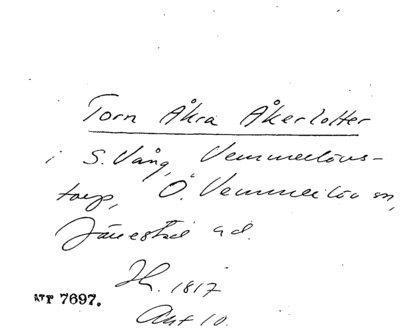 Torn Åkra Åkerlotter
i S. Vång, Vemmerlövs-
torp, Ö. Vemmerlöv sn,
Järrestad hd.
Jh. 1817
Akt 10.
ATP 7697.